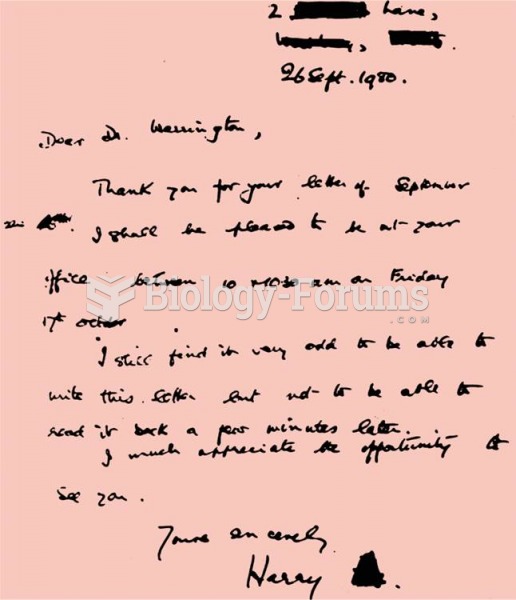 2 Lane,
26 Sept. 1980.
Dear Dr. Warrington,
Thank you for your letter of September
I shall be pleased to be at your
office between 10 - 10.30 am on Friday
17th october
I still find it very odd to be able to
write this letter but not to be able to
read it back a few minutes later.
I much appreciate the opportunity to
see you.
Yours sincerely
Harry
Biology-Forums
.COM